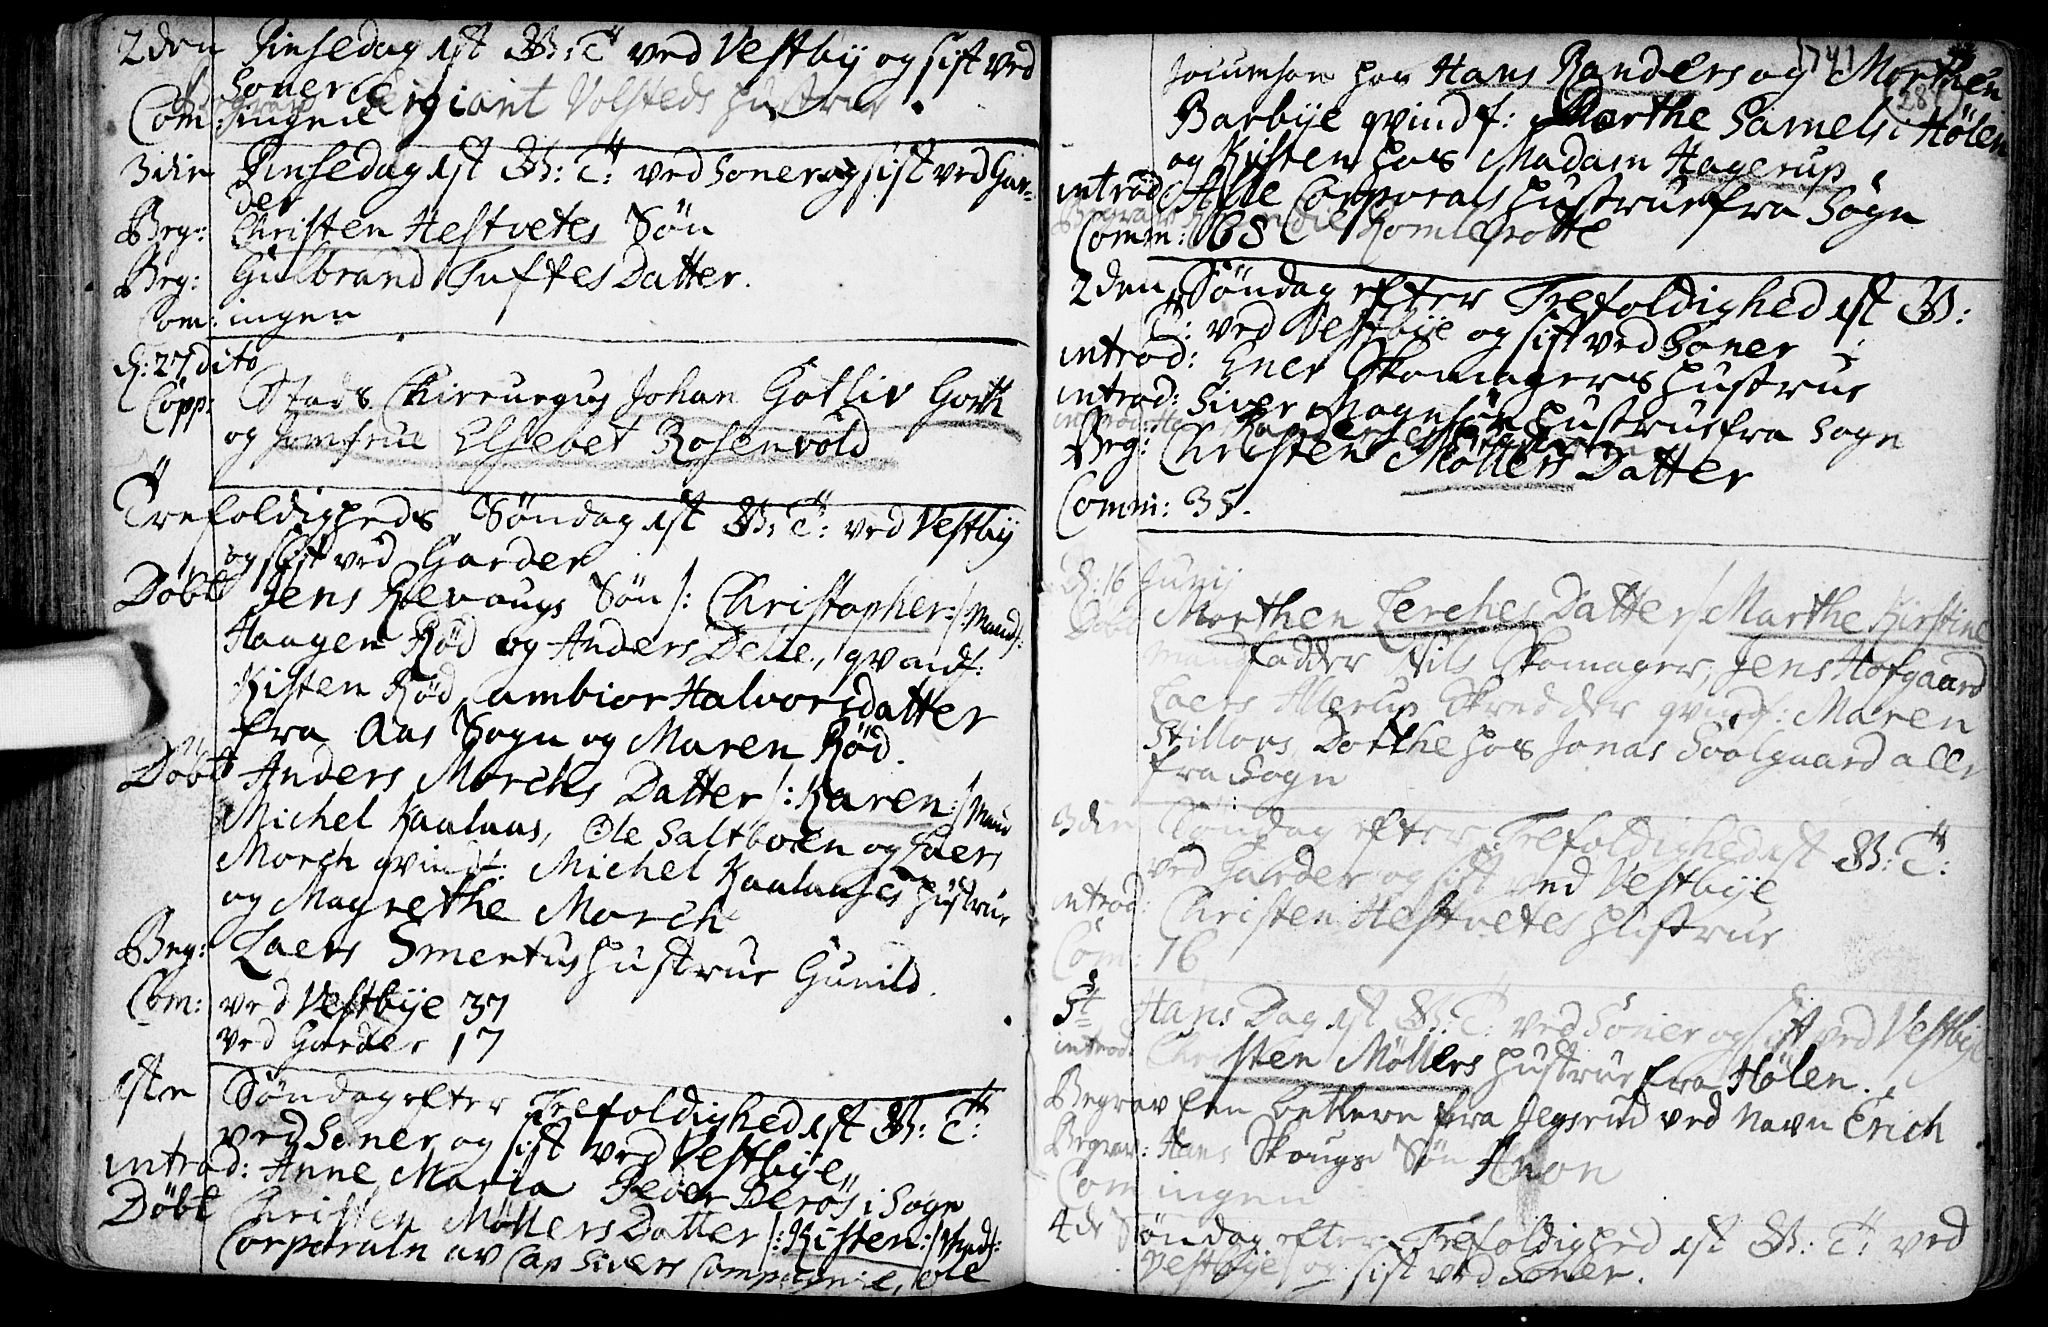 2den Pinsedag ist B: T: ved Vestby og sist ved
Soner
Begrav Sergiant Volsteds hustrue
Com: ingen
3die Pinsedag ist B: T: ved Soner og sist ved Gar-
der
Beg: Christen Hestvetes Søn
Beg: Gulbrand Tuftes Datter.
Com: ingen
d: 27 dito
Copp: Stads Chirurgus Johan Gotliv Gorth
og Jomfrue Elsebet Rosenvold
Trefoldigheds Søndag ist B: T: ved Vestby
og sist ved Garder
Døbt Jens Revaugs Søn /: Christopher :/ Mandf:
Haagen Rød og Anders Delie, qvindf:
Kisten Rød, ambior Halvorsdatter
fra Aas Sogn og Maren Rød.
Døbt Anders Morchs Datter /: Karen :/ Mand
Michel Kaalaas, Ole Saltboen og Laers
Morch qvindf: Michel Kaalaases hustrue
og Magrethe Morch
Beg: Laers Smertus hustrue Gunild.
Com: ved Vestbye 37
ved Garder 17
1ste Søndag efter Trefoldighed ist B: T:
ved Soner og sist ved Vestbye
introd: Anne Maria Peder Berøs i Sogn
Døbt Christen Møllers Datter /: Kisten :/ Mandf:
Corporaln av Cap Sivers Compagnie, Ole
1741
28
Jocumsen hos Hans Randers og Morthen
Barbye qvindf: Marthe Samels i Hølen
og Kisten hos Madam Hagerup
introd: Alle Corporals hustrue fra Sogn
Begrav Romlegrotte
Comm: 68
2den Søndag efter Trefoldighed ist B:
T: ved Vestbye og sist ved Soner
introd: Ener Skomagers hustrue
introd: Siver Magnesøn hustrue fra Sogn
Beg: Christen Møllers Datter
Comm: 35.
d: 16 Junij
Døbt Morthen Lerches Datter / Marthe Kirstine
mandfadder Nils Skomager, Jens Hofgaard
Laers Allerup Skredder qvindf: Maren
Stillovs, Dorthe hos Jonas Soolgaard alle
fra Sogn
3die Søndag efter Trefoldighed ist B: T:
ved Garder og sist ved Vestbye
introd: Christen Hestvetes hustrue
Com: 16
St Hans Dag ist B: T: ved Soner og sist ved Vestbye
introd: Christen Møllers hustrue fra Hølen.
Begrav Een betlere fra Jegsrud ved Navn Erich
Begrav: Hans Skougs Søn Anon
Com ingen
4de Søndag efter Trefoldighed ist B: T: ved
Vestbye og sist ved Soner.